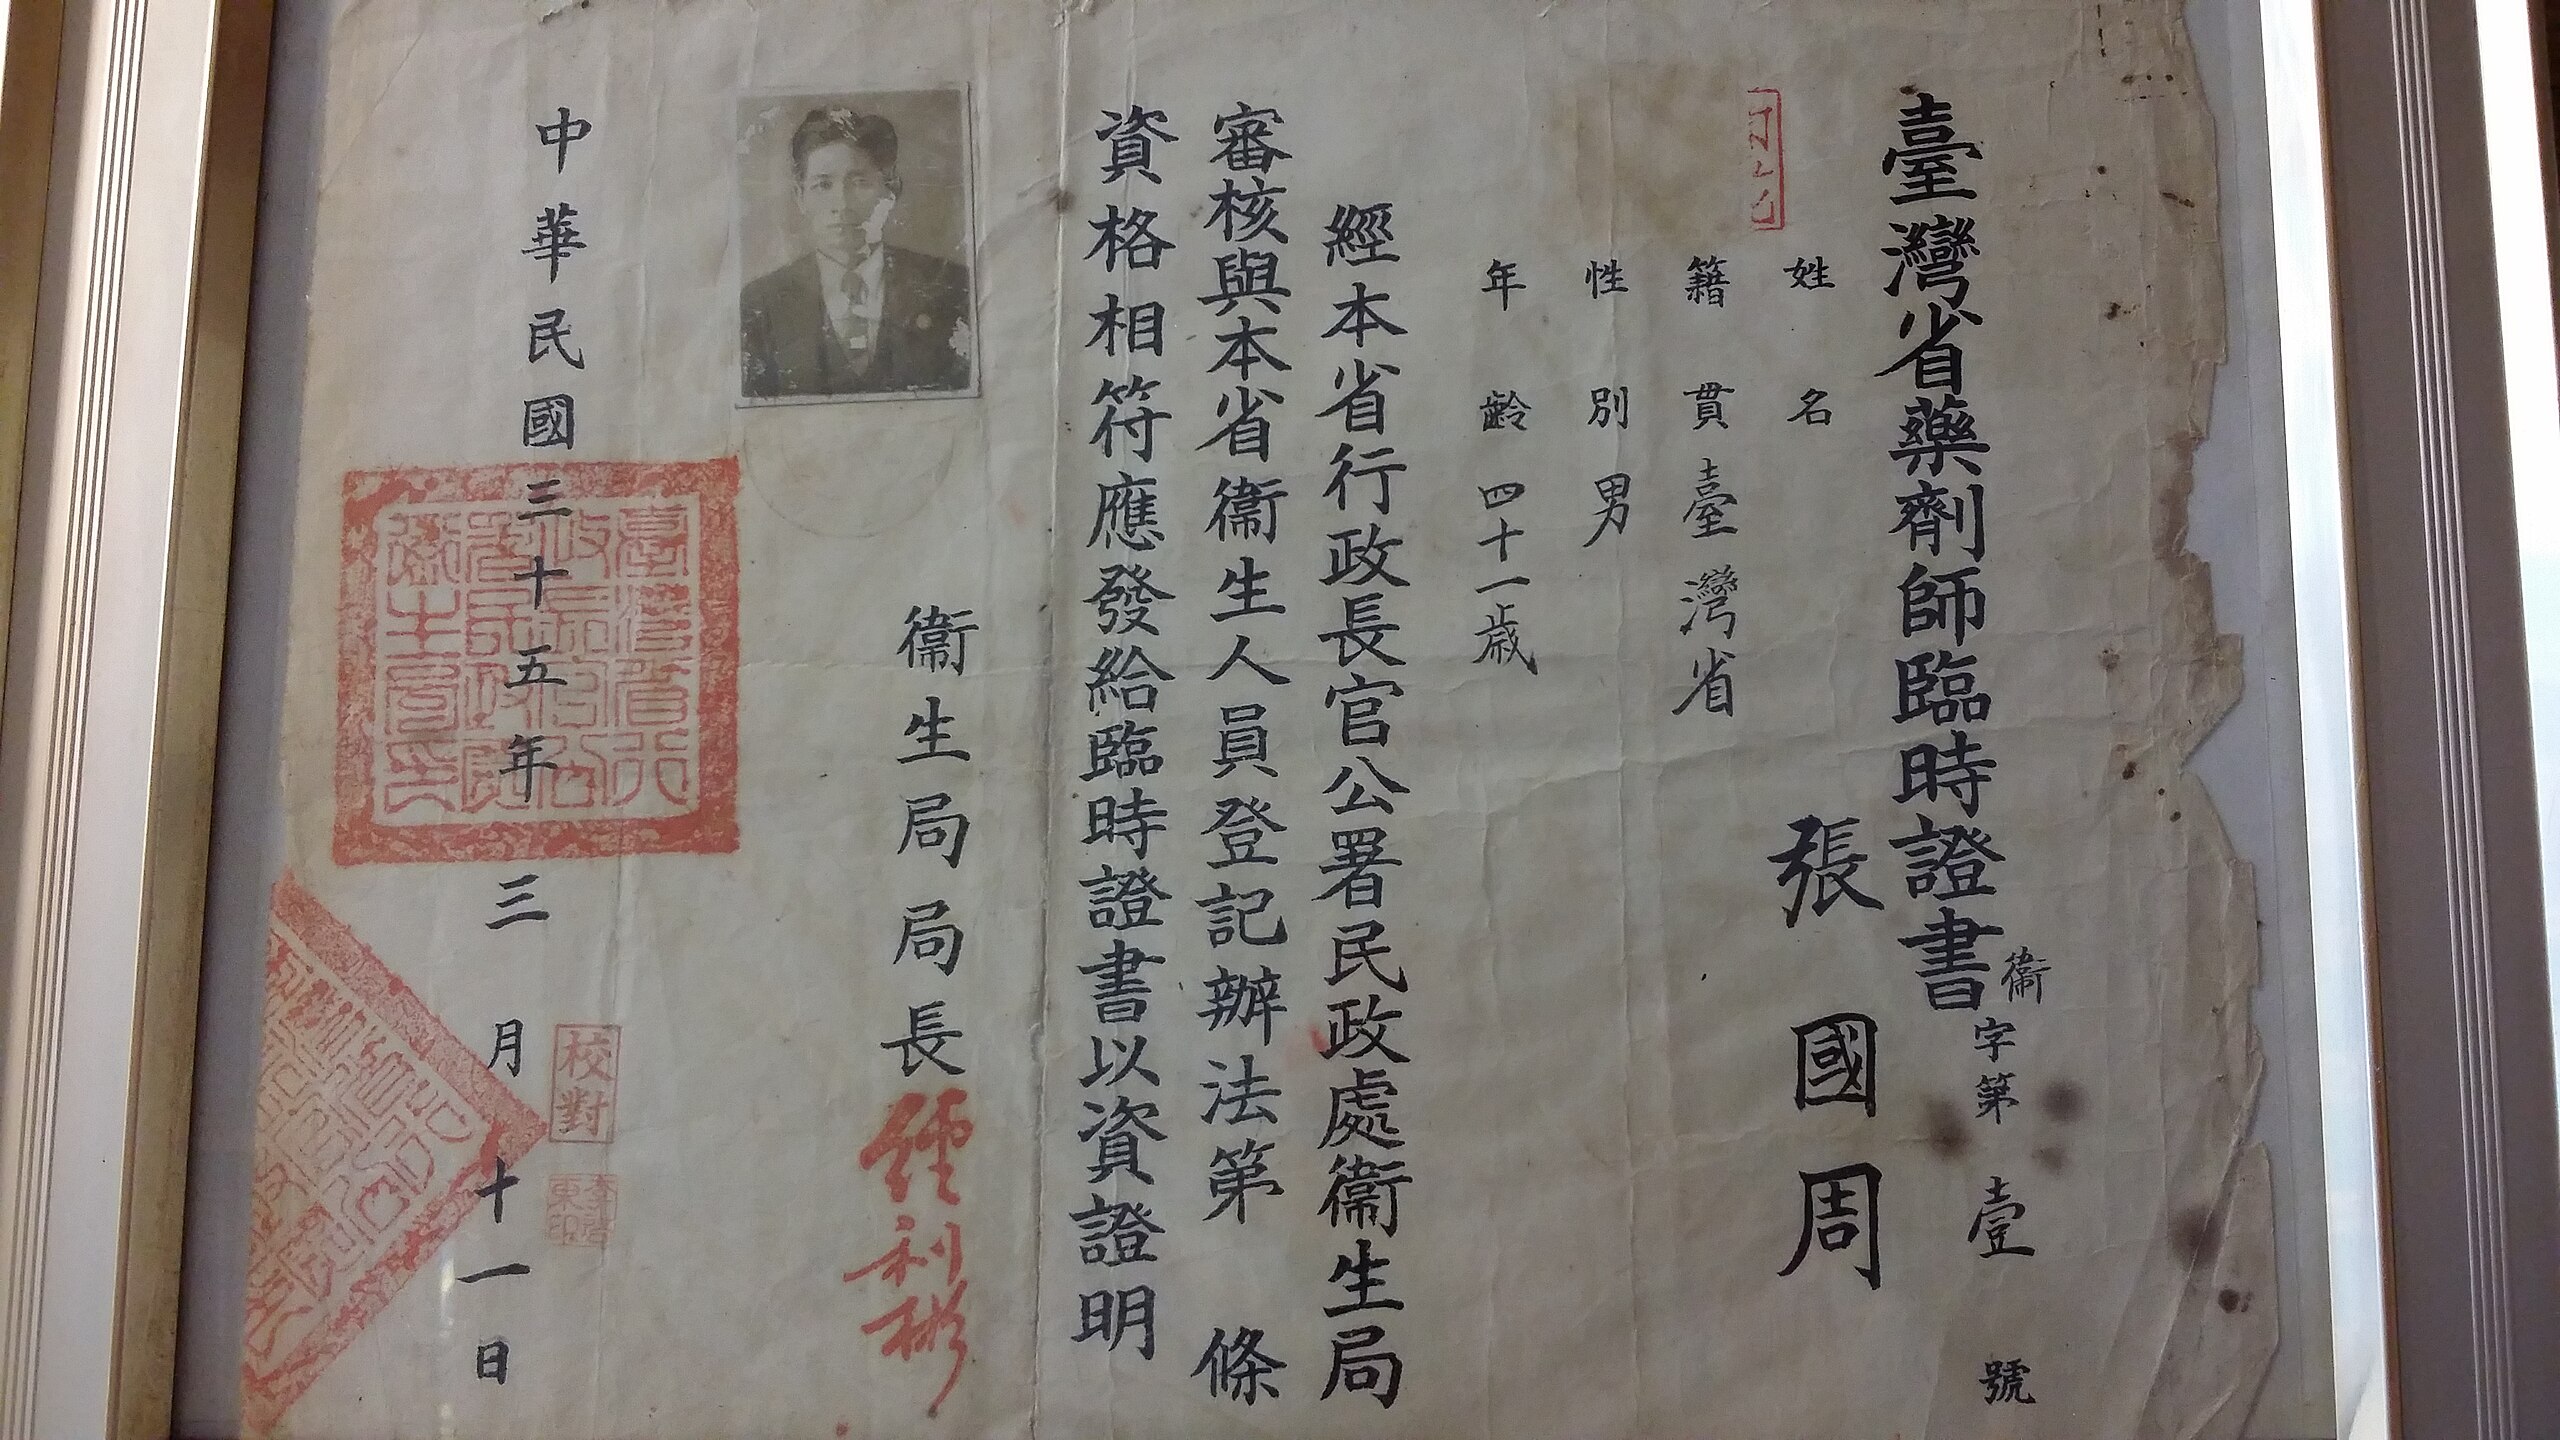 臺灣省藥劑師臨時證書
衞字第壹號
姓名 張國周
籍貫 臺灣省
性別 男
年齡 四十一歲
經本省行政長官公署民政處衞生局
審核與本省衞生人員登記辦法第 條
資格相符應發給臨時證書以資證明
衞生局局長 經利彬
中華民國三十五年三月十一日
校對
臺灣省行政長官公署民政處衞生局印